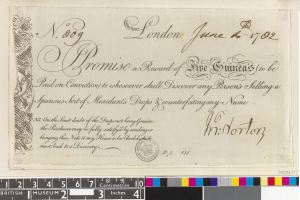 No. 809 London June 4th 1782
I Promise a Reward of Five Guineas (to be
Paid on Conviction) to whosoever shall Discover any Persons Selling a
Spurious Sort of Maredants Drops & counterfeiting my Name
NB. On the least doubt of the Drops not being Genuine
the Purchaser may be fully satisfied by sending or
bringing this Note to my House to be Check'd which
must lead to a Discovery
Wm. Norton
BRITISH MUSEUM
Centimetres